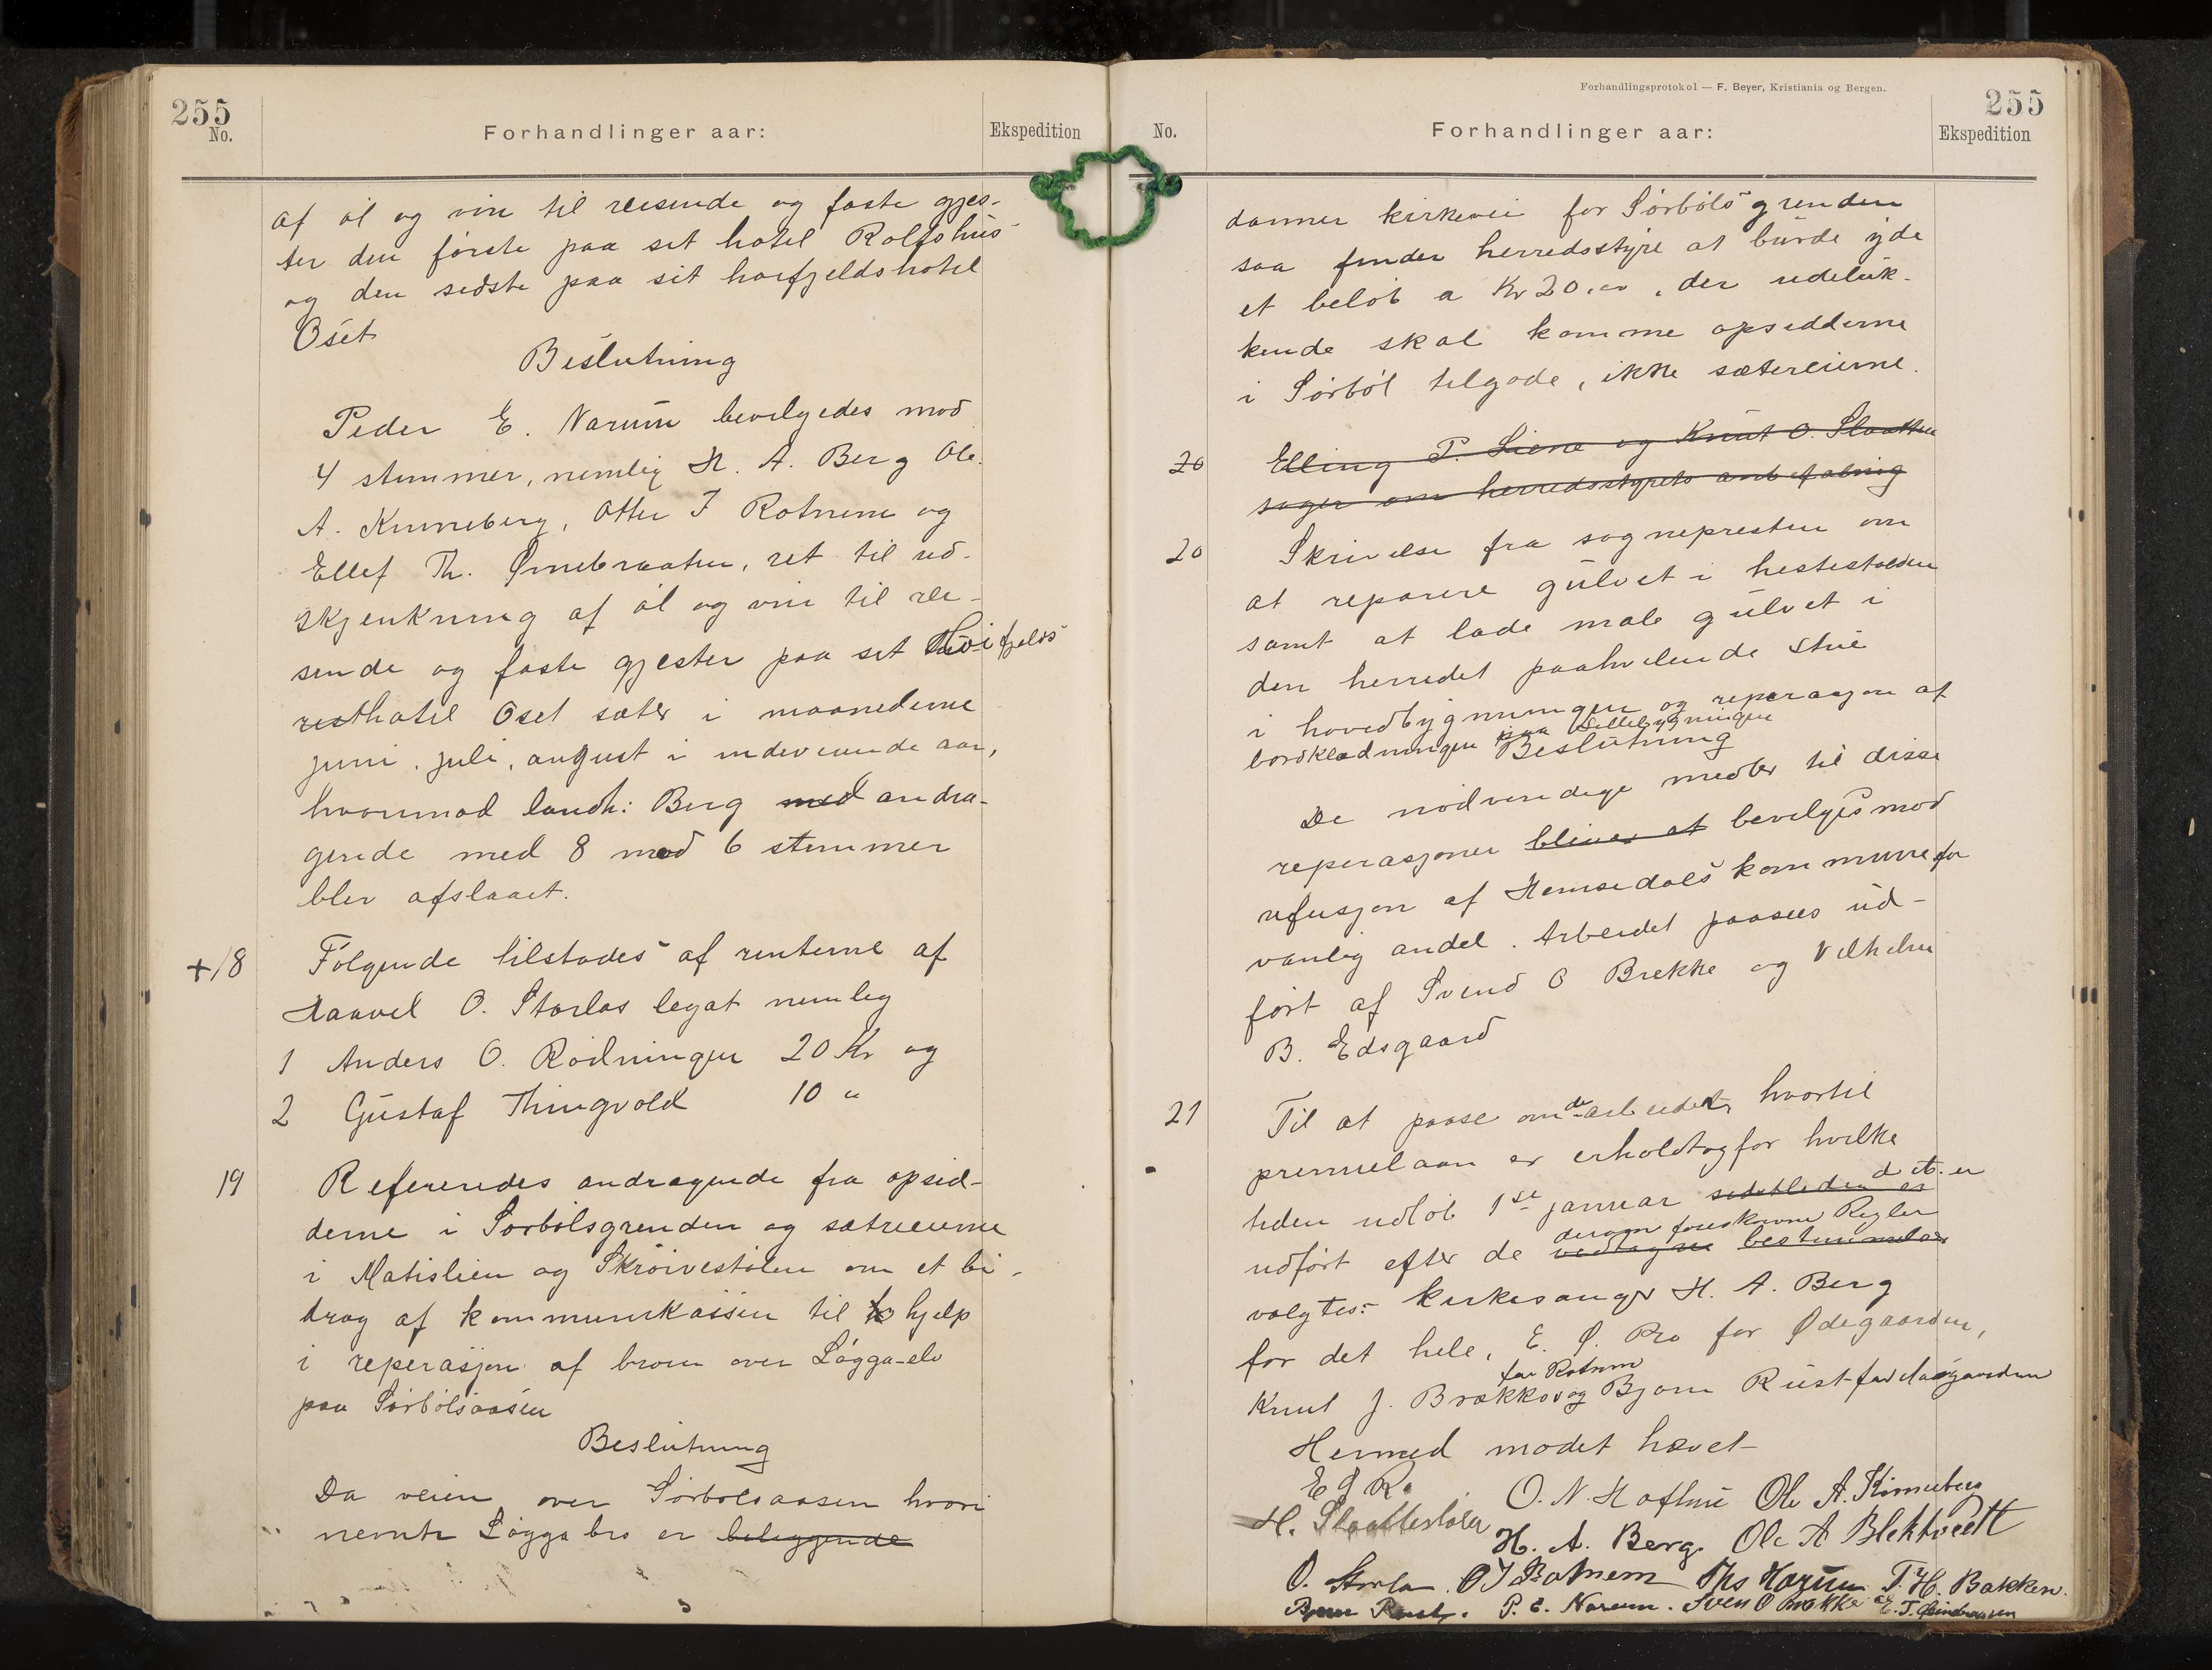 255
No.
Forhandlinger aar:
Ekspedition
af øl og vin til reisende og faste gjes-
ter den første paa sit hotel Rolfshus
og den sidste paa sit høifjeldshotel
Oset
Beslutning
Peder E. Narum bevilgedes mod
4 stemmer, nemlig H. A. Berg Ole
A. Kinneberg, Otter I Rotnem og
Ellef Th. Ørnebraaten, ret til ud-
skjenkning af øl og vin til rei-
sende og faste gjester paa sit høifjelds
hotel Oset sæter i maanederne
juni, juli, august i indeverende aar,
hvorimod landh: Berg med andra-
gende med 8 mod 6 stemmer
blev afslaaet.
+18
Følgende tilstodes af renterne af
Haavel O. Storlas legat nemlig
1 Anders O. Rødningen 20 Kr og
2 Gustaf Thingvold 10 "
19
Refereredes andragende fra opsid-
derne i Sørbølsgrenden og sætreeierne
i Matislien og Skrøivestølen om et bi-
drag af kommunekassen til hjelp
i reperasjon af broen over Løgga-elv
paa Sørbølsaasen
Beslutning
Da veien over Sørbølsaasen hvori
nevnte Løgga bro er beliggende
Forhandlingsprotokol — F. Beyer, Kristiania og Bergen.
255
No.
Forhandlinger aar:
Ekspedition
danner kirkevei for Sørbølsgrenden
saa finder herredsstyre at burde yde
et beløb a Kr 20.00, der udeluk-
kende skal komme opsidderne
i Sørbøl tilgode, ikke sætereierne.
20 Elling P. Liene og Knut O. Slaatten
søger om herredsstyrets anbefaling
20 Skrivelse fra sognepresten om
at reparere gulvet i hestestalden
samt at lade male gulvet i
den herredet paahvilende stue
i hovedbygningen og reperasjon af
bordklædningen paa Lillebygningen
Beslutning
De nødvendige midler til disse
reperasjoner bliver at bevilges mod
refusjon af Hemsedals kommune for
vanlig andel. Arbeidet paasees ud-
ført af Svend O Brekke og Vilhelm
B. Edsgaard
21 Til at paase om de arbeider, hvortil
premielaan er erholdt og for hvilke
tiden udløb 1ste januar sidstleden er
d. A. er
derom foreskrevne Regler
udført efter de vedtagne bestemmelser
valgtes: kirkesanger H. A. Berg
for det hele, E. Ø. Bro for Ødegaarden,
for Rotnem
Knut J. Brækko og Bjørn Rust for
Hermed mødet hævet
E G R.
O. N. Hofthue Ole A. Kinneberg
H. Slaattestølen
H. A. Berg. Ole A Blektvedt
O. Storla. O I Rotnem Ths Narum T. H. Bakken.
Bjørn Rust. P. E. Narum. Sven O Brække